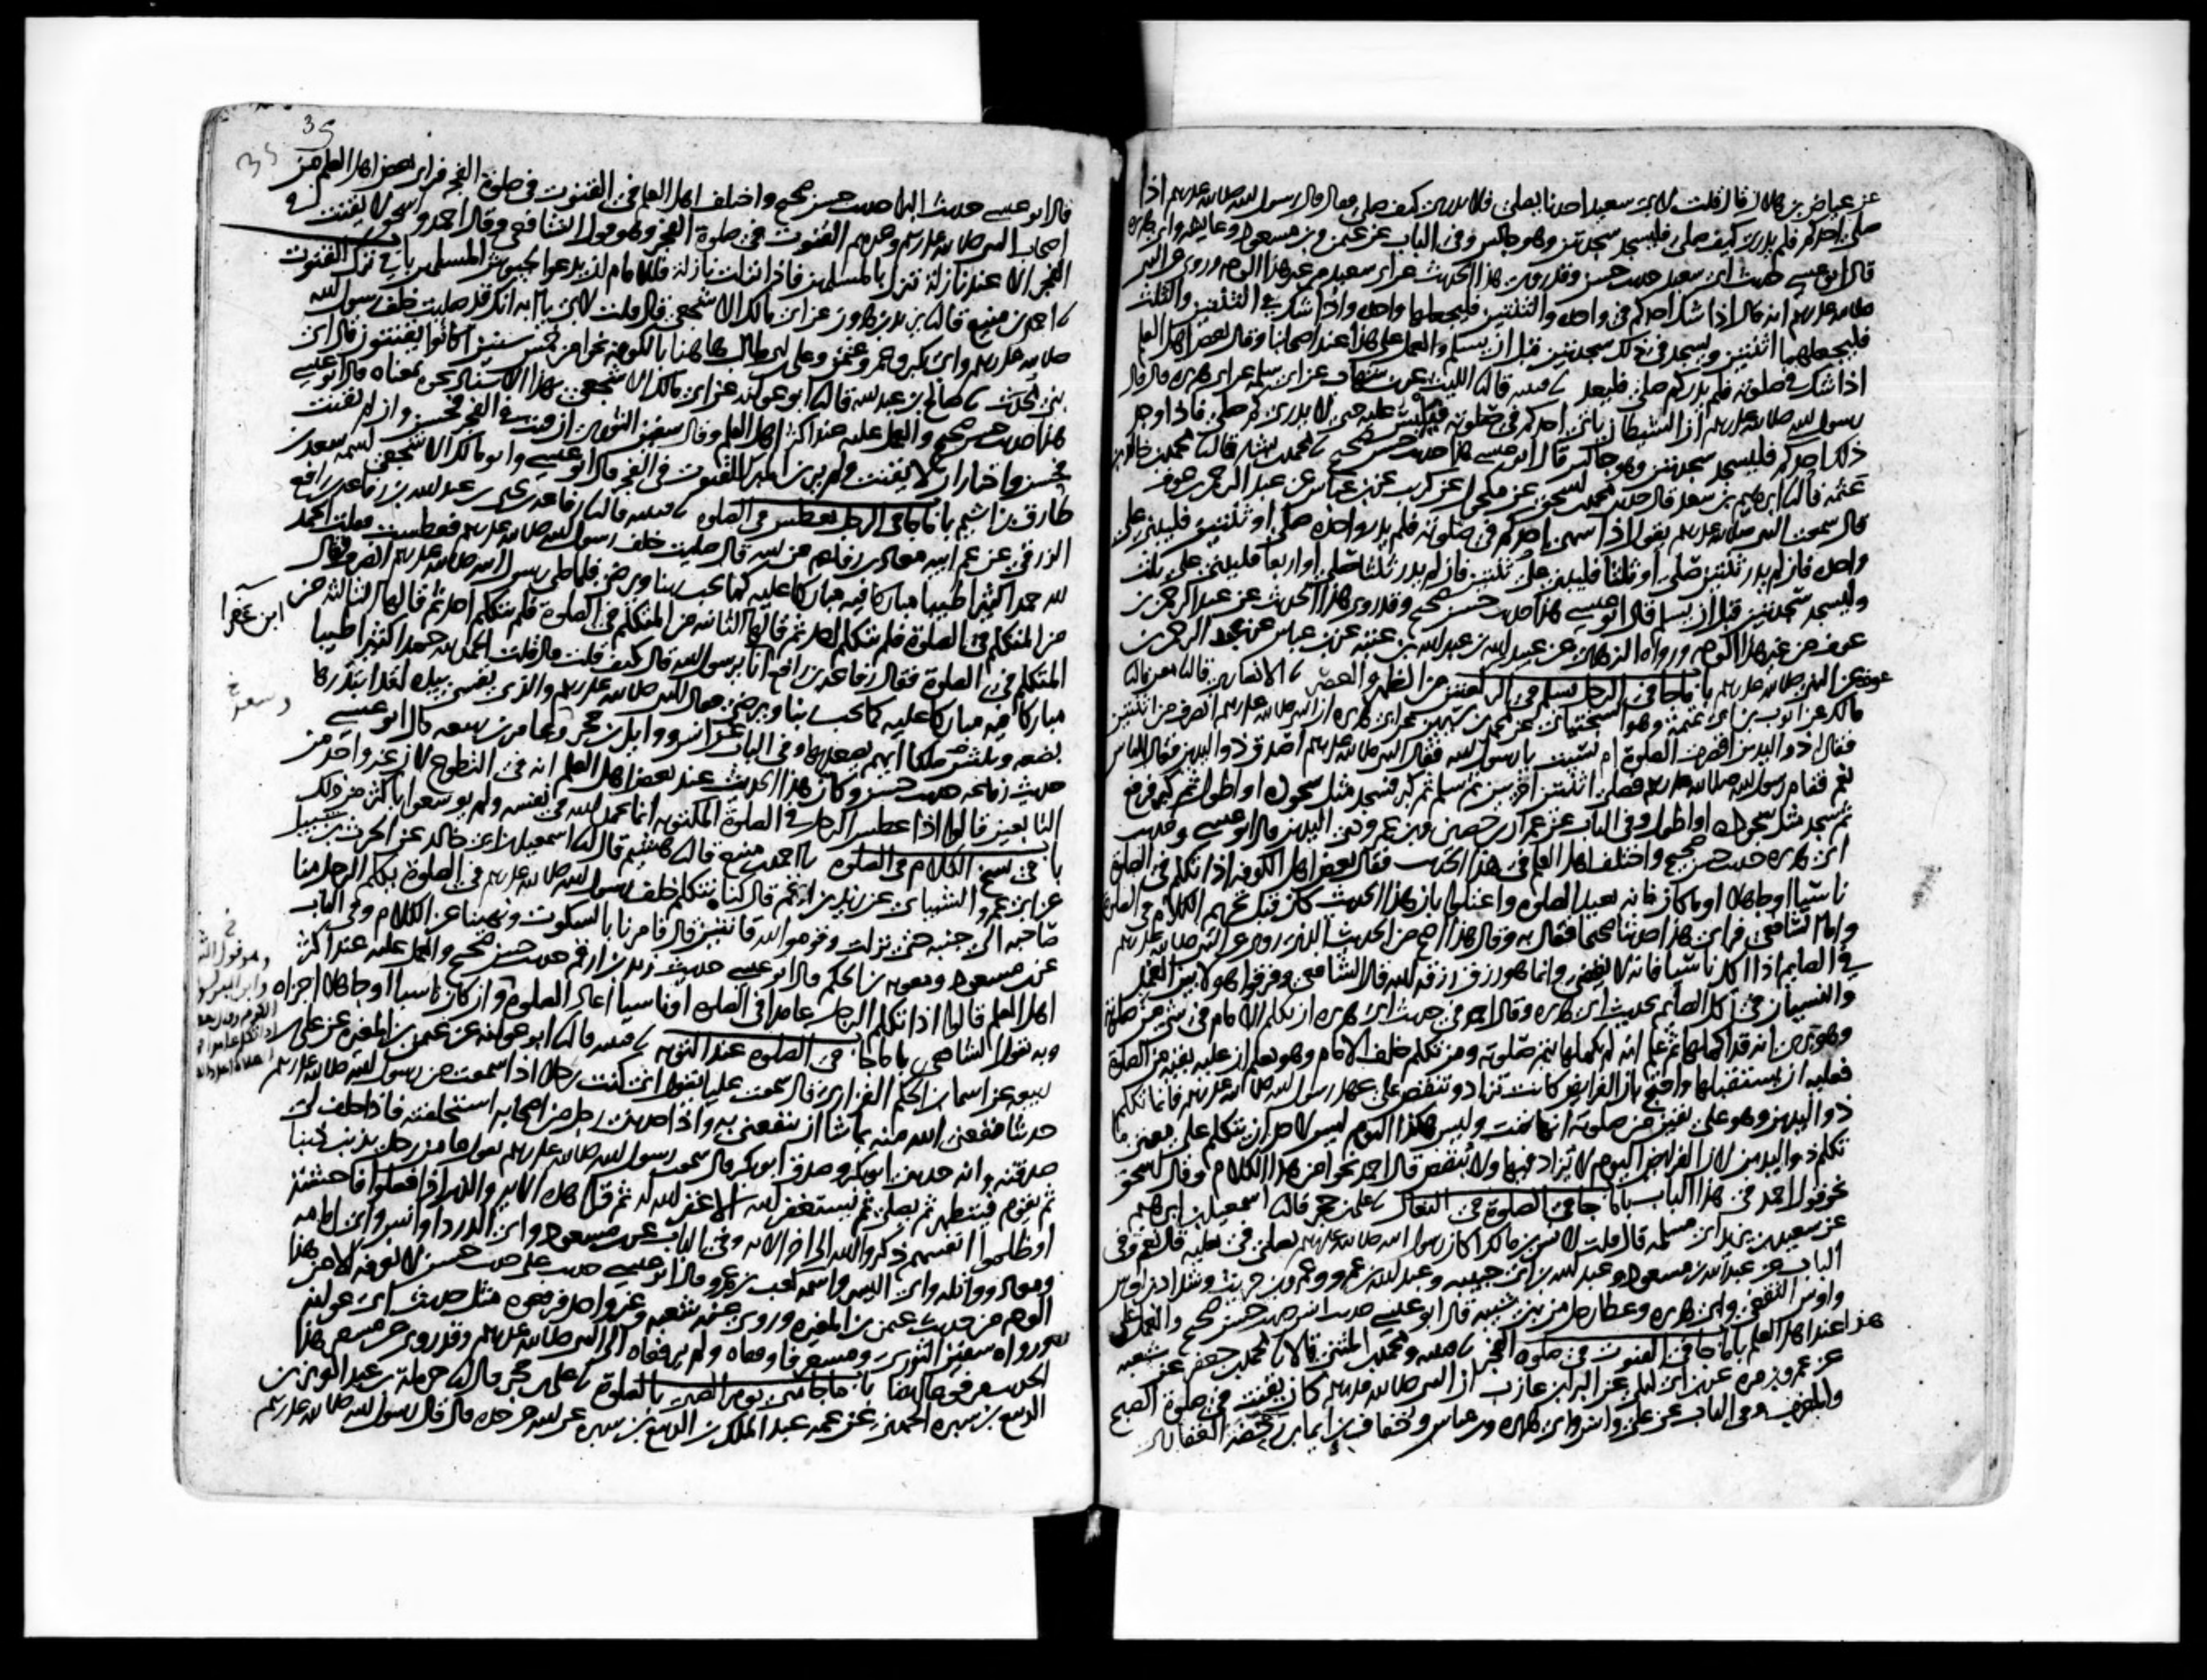 عن عياض بن هلال قال قلت لابي سعيد احدنا يصلي فلا يدري كيف صلى فقال قال رسول الله صلى الله عليه وسلم اذا
صلى احدكم فلم يدر كيف صلى فليسجد سجدتين وهو جالس وفي الباب عن عثمن وبن مسعود وعايشه وابي هريره
قال ابو عيسى حديث ابي سعيد حديث حسن وقد روي هذا الحديث عن ابي سعيد من غير هذا الوجه وروي عن النبي
صلى الله عليه وسلم انه قال اذا شك احدكم في واحده والثنتين فليجعلها واحده واذا شك في الثنتين والثلث
فليجعلهما اثنتين ويسجد في ذلك سجدتين قبل ان يسلم والعمل على هذا عند اصحابنا وقال بعض اهل العلم
اذا شك في صلوته فلم يدر كم صلى فليعد قتيبه قال الليث عن بن شهاب عن ابي سلمه عن ابي هريره قال قال
رسول الله صلى الله عليه وسلم ان الشيطان ياتي احدكم في صلوته فيلبس عليه حتى لا يدري كم صلى فاذا وجد
ذلك احدكم فليسجد سجدتين وهو جالس قال ابو عيسى هذا حديث حسن صحيح محمد بن بشار قال محمد بن خالد بن
عثمه قال ابرهيم بن سعد قال حدثني محمد بن اسحق عن مكحول عن كريب عن بن عباس عن عبد الرحمن بن عوف
قال سمعت النبي صلى الله عليه وسلم يقول اذا سهى احدكم في صلوته فلم يدر واحده صلى او ثنتين فليبن على
واحده فان لم يدر ثنتين صلى او ثلثا فليبن على ثنتين فان لم يدر ثلثا صلى او اربعا فليبن على ثلث
وليسجد سجدتين قبل ان يسلم قال ابو عيسى هذا حديث حسن صحيح وقد روي هذا الحديث عن عبد الرحمن بن
عوف من غير هذا الوجه ورواه الزهري عن عبيد الله بن عبد الله بن عتبه عن بن عباس عن عبد الرحمن بن
عوف عن النبي صلى الله عليه وسلم باب ما جا في الرجل يسلم في الركعتين من الظهر والعصر الانصاري قال معن قال
مالك عن ايوب بن ابي تميمه وهو السختياني عن محمد بن سيرين عن ابي هريره ان النبي صلى الله عليه وسلم انصرف من اثنتين
فقال له ذو اليدين اقصرت الصلوة ام نسيت يا رسول الله فقال النبي صلى الله عليه وسلم اصدق ذو اليدين فقال الناس
نعم فقام رسول الله صلى الله عليه وسلم فصلى اثنتين اخريين ثم سلم ثم كبر فسجد مثل سجوده او اطول ثم كبر فرفع
ثم سجد مثل سجوده او اطول وفي الباب عن عمران بن حصين وبن عمر وذي اليدين قال ابو عيسى وحديث
ابي هريره حديث حسن صحيح واختلف اهل العلم في هذا الحديث فقال بعض اهل الكوفه اذا تكلم في الصلوة
ناسيا او جاهلا او ما كان فانه يعيد الصلوه واعتلوا بان هذا الحديث كان قبل تحريم الكلام في الصلوة
واما الشافعي فراى هذا حديثا صحيحا فقال به وقال هذا اصح من الحديث الذي روي عن النبي صلى الله عليه وسلم
في الصايم اذا اكل ناسيا فانه لا يقضي وانما هو رزق رزقه الله قال الشافعي وفرقوا هولا بين العمد
والنسيان في اكل الصايم بحديث ابي هريره وقال احمد في حديث ابي هريره ان تكلم الامام في شي من صلوته
وهو يرى انه قد اكملها ثم علم انه لم يكملها يتم صلوته ومن تكلم خلف الامام وهو يعلم ان عليه بقيه من الصلوة
فعليه ان يستقبلها واحتج بان الفرايض كانت تزاد وتنقص على عهد رسول الله صلى الله عليه وسلم فانما تكلم
ذو اليدين وهو على يقين من صلوته انها تمت وليس هكذا اليوم ليس لاحد ان يتكلم على معنى ما
تكلم ذو اليدين لان الفرايض اليوم لا يزاد فيها ولا ينقص قال احمد نحوا من هذا الكلام وقال اسحق
نحو قول احمد في هذا الباب باب ما جا في الصلوة في النعال علي بن حجر قال اسمعيل بن ابرهيم
عن سعيد بن يزيد ابي مسلمه قال قلت لانس بن مالك اكان رسول الله صلى الله عليه وسلم يصلي في نعليه قال نعم وفي
الباب عن عبد الله بن مسعود وعبد الله بن ابي حبيبه وعبد الله بن عمرو وعمرو بن حريث وشداد بن اوس
واوس الثقفي وابي هريره وعطا رجل من بني شيبه قال ابو عيسى حديث انس حديث حسن صحيح والعمل على
هذا عند اهل العلم باب ما جا في القنوت في صلوة الفجر قتيبه ومحمد بن المثنى قالا محمد بن جعفر عن شعبه
عن عمرو بن مره عن بن ابي ليلى عن البرا بن عازب ان النبي صلى الله عليه وسلم كان يقنت في صلوة الصبح
والمغرب وفي الباب عن علي وانس وابي هريره وبن عباس وخفاف بن ايما بن رحضه الغفاري
35
35
قال ابو عيسى حديث البرا حديث حسن صحيح واختلف اهل العلم في القنوت في صلوة الفجر فراى بعض اهل العلم من
اصحاب النبي صلى الله عليه وسلم وغيرهم القنوت في صلوة الفجر وهو قول الشافعي وقال احمد واسحق لا يقنت في
الفجر الا عند نازلة تنزل بالمسلمين فاذا نزلت نازلة فللامام ان يدعو لجيوش المسلمين باب في ترك القنوت
احمد بن منيع قال يزيد بن هارون عن ابي مالك الاشجعي قال قلت لابي يا ابه انك قد صليت خلف رسول الله
صلى الله عليه وسلم وابي بكر وعمر وعثمن وعلي بن ابي طالب هاهنا بالكوفه نحوا من خمس سنين اكانوا يقنتون قال اي
بني محدث صالح بن عبد الله قال ابو عوانه عن ابي مالك الاشجعي بهذا الاسناد نحوه بمعناه قال ابو عيسى
هذا حديث حسن صحيح والعمل عليه عند اكثر اهل العلم وقال سفين الثوري ان قنت في الفجر فحسن وان لم يقنت
فحسن واختار ان لا يقنت ولم ير بن المبارك القنوت في الفجر قال ابو عيسى وابو مالك الاشجعي اسمه سعد بن
طارق بن اشيم باب ما جا في الرجل يعطس في الصلوه قتيبه قال رفاعه بن يحيى بن عبد الله بن رفاعه بن رافع
الزرقي عن عم ابيه معاذ بن رفاعه عن ابيه قال صليت خلف رسول الله صلى الله عليه وسلم فعطست فقلت الحمد
لله حمدا كثيرا طيبا مباركا فيه مباركا عليه كما يحب ربنا ويرضى فلما صلى رسول الله صلى الله عليه وسلم انصرف فقال
من المتكلم في الصلوة فلم يتكلم احد ثم قالها الثانيه من المتكلم في الصلوة فلم يتكلم احد ثم قالها الثالثه من
المتكلم في الصلوة فقال رفاعه بن رافع انا يرسول الله قال كيف قلت قال قلت الحمد لله حمدا كثيرا طيبا
مباركا فيه مباركا عليه كما يحب ربنا ويرضى فقال النبي صلى الله عليه وسلم والذي نفسي بيده لقد ابتدرها
بضعه وثلثين ملكا ايهم يصعد بها وفي الباب عن انس ووايل بن حجر وعامر بن ربيعه قال ابو عيسى
حديث رفاعه حديث حسن وكان هذا الحديث عند بعض اهل العلم انه في التطوع لان غير واحد من
التابعين قالوا اذا عطس الرجل في الصلوة المكتوبه انما يحمد الله في نفسه ولم يوسعوا باكثر من ذلك
باب في نسخ الكلام في الصلوه احمد بن منيع قال هشيم قال اسمعيل بن ابي خالد عن الحرث بن شبيل
عن ابي عمرو الشيباني عن زيد بن ارقم قال كنا نتكلم خلف رسول الله صلى الله عليه وسلم في الصلوة يكلم الرجل منا
صاحبه الى جنبه حتى نزلت وقوموا لله قانتين قال فامرنا بالسكوت ونهينا عن الكلام وفي الباب
عن بن مسعود ومعويه بن الحكم قال ابو عيسى حديث زيد بن ارقم حديث حسن صحيح والعمل عليه عند اكثر
اهل العلم قالوا اذا تكلم الرجل عامدا في الصلوه او ناسيا اعاد الصلوة وان كان ناسيا او جاهلا اجزاه
وبه يقول الشافعي باب ما جا في الصلوه عند التوبه قتيبه قال ابو عوانه عن عثمن بن المغيره عن علي بن
ربيعه عن اسما بن الحكم الفزاري قال سمعت عليا يقول اني كنت رجلا اذا سمعت من رسول الله صلى الله عليه وسلم
حديثا نفعني الله منه بما شا ان ينفعني به واذا حدثني رجل من اصحابه استحلفته فاذا حلف لي
صدقته وانه حدثني ابو بكر وصدق ابو بكر قال سمعت رسول الله صلى الله عليه وسلم يقول ما من رجل يذنب ذنبا
ثم يقوم فيتطهر ثم يصلي ثم يستغفر الله الا غفر الله له ثم قرا هذه الايه والذين اذا فعلوا فاحشة
او ظلموا انفسهم ذكروا الله الى اخر الايه وفي الباب عن بن مسعود وابي الدردا وانس وابي امامه
ومعاذ وواثله وابي اليسر واسمه كعب بن عمرو قال ابو عيسى حديث علي حديث حسن لا نعرفه الا من هذا
الوجه من حديث عثمن بن المغيره وروى عنه شعبه وغير واحد فرفعوه مثل حديث ابي عوانه
ورواه سفين الثوري ومسعر فاوقفاه ولم يرفعاه الى النبي صلى الله عليه وسلم وقد روي عن مسعر هذا
الحديث مرفوعا ايضا باب ما جا متى يومر الصبي بالصلوة علي بن حجر قال حرملة بن عبد العزيز بن
الربيع بن سبره الجهني عن عمه عبد الملك بن الربيع بن سبره عن ابيه عن جده قال قال رسول الله صلى الله عليه وسلم
ابن عفرا